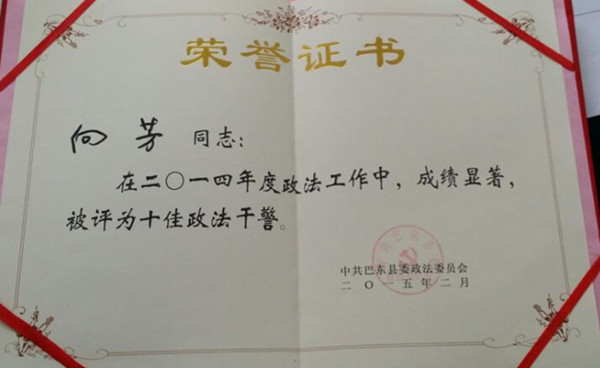 荣誉证书
向芳 同志：
在二〇一四年度政法工作中，成绩显著，
被评为十佳政法干警。
中共巴东县委政法委员会
二〇一五年二月